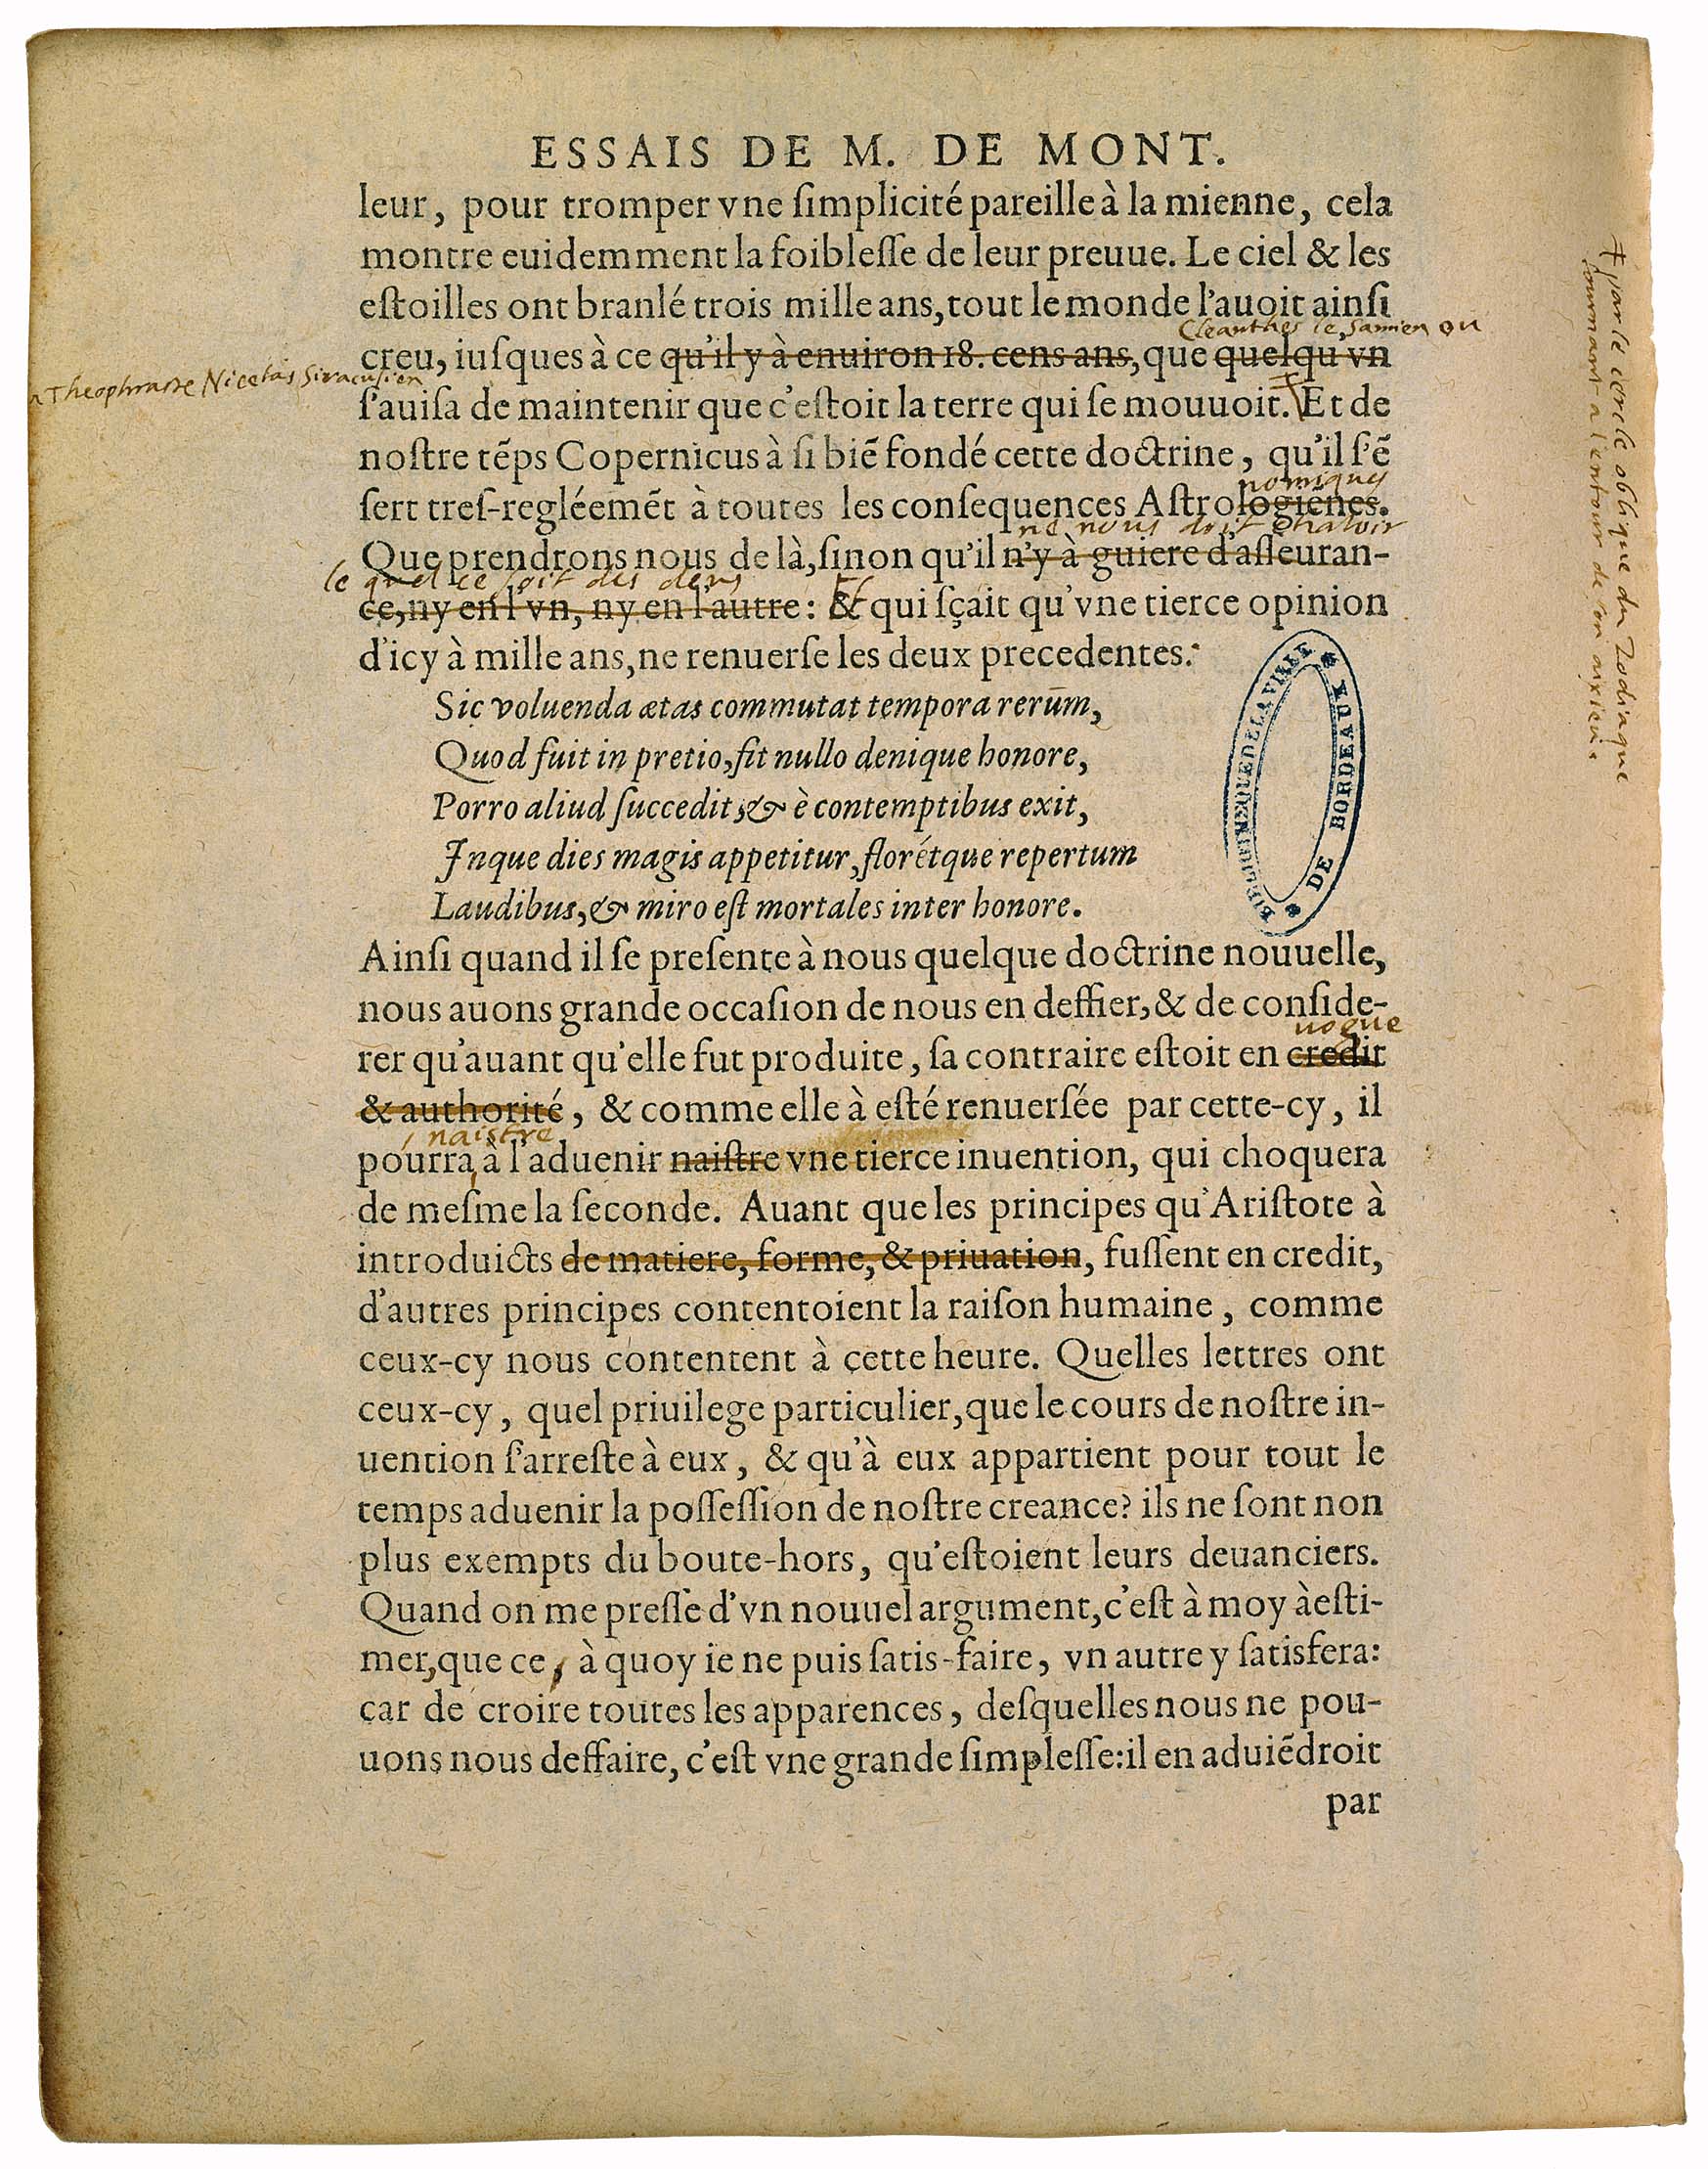 ESSAIS DE M. DE MONT.
leur, pour tromper vne ſimplicité pareille à la mienne, cela
montre euidemment la foibleſſe de leur preuue. Le ciel & les
eſtoilles ont branlé trois mille ans, tout le monde l'auoit ainſi
Cleanthes le Samien ou
creu, iuſques à ce qu'il y à enuiron 18. cens ans, que quelqu'vn
Theophraste Nicetas Siracusien
ſ'auiſa de maintenir que c'eſtoit la terre qui ſe mouuoit. Et de
noſtre tẽps Copernicus à ſi biẽ fondé cette doctrine, qu'il ſ'ẽ
nomiques
ſert treſ-regléemẽt à toutes les conſequences Aſtrologienes.
ne nous doit chaloir
Que prendrons nous de là, ſinon qu'il n'y à guiere d'aſſeuran-
le quel ce soit des deus
Et
ce, ny en l'vn, ny en l'autre: & qui ſçait qu'vne tierce opinion
d'icy à mille ans, ne renuerſe les deux precedentes.
Sic voluenda ætas commutat tempora rerūm,
Quod fuit in pretio, fit nullo denique honore,
Porro aliud ſuccedit, & è contemptibus exit,
Inque dies magis appetitur, florétque repertum
Laudibus, & miro eſt mortales inter honore.
Ainſi quand il ſe preſente à nous quelque doctrine nouuelle,
nous auons grande occaſion de nous en deffier, & de conſide-
uogue
rer qu'auant qu'elle fut produite, ſa contraire eſtoit en credit
& authorité, & comme elle à eſté renuerſée par cette-cy, il
naistre
pourra à l'aduenir naiſtre vne tierce inuention, qui choquera
de meſme la ſeconde. Auant que les principes qu'Ariſtote à
introduicts de matiere, forme, & priuation, fuſſent en credit,
d'autres principes contentoient la raiſon humaine, comme
ceux-cy nous contentent à cette heure. Quelles lettres ont
ceux-cy, quel priuilege particulier, que le cours de noſtre in-
uention ſ'arreſte à eux, & qu'à eux appartient pour tout le
temps aduenir la poſſeſſion de noſtre creance? ils ne ſont non
plus exempts du boute-hors, qu'eſtoient leurs deuanciers.
Quand on me preſſe d'vn nouuel argument, c'eſt à moy à eſti-
mer, que ce, à quoy ie ne puis ſatis-faire, vn autre y ſatisfera:
car de croire toutes les apparences, deſquelles nous ne pou-
uons nous deffaire, c'eſt vne grande ſimpleſſe: il en aduiẽdroit
par
par le cercle oblique du Zodiaque
tournant a l'entour de son aixieu
BIBLIOTHEQUE DE LA VILLE
DE BORDEAUX